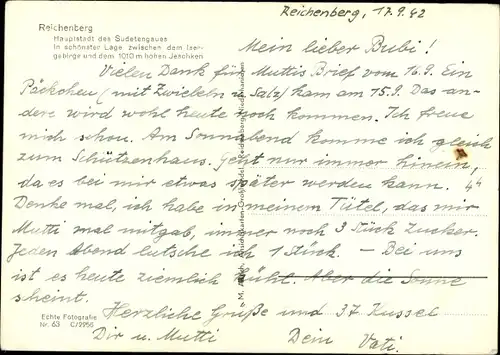 Reichenberg, 17.9.42
Reichenberg
Hauptstadt des Sudetengaues
In schönster Lage zwischen dem Iser-
gebirge und dem 1010 m hohen Jeschken
Mein lieber Bubi!
Vielen Dank für Muttis Brief vom 16.9. Ein
Päckchen (mit Zwiebeln u. Salz) kam am 15.9. Das an-
dere wird wohl heute noch kommen. Ich freue
mich schon. Am Sonnabend komme ich gleich
zum Schützenhaus. Geht nur immer hinein,
da es bei mir etwas später werden kann.
Denke mal, ich habe in meinem Tütel, das mir
Mutti mal mitgab, immer noch 3 Stück Zucker.
Jeden Abend lutsche ich 1 Stück. – Bei uns
ist es heute ziemlich kühl. Aber die Sonne
scheint.
Herzliche Grüße und 37 Kussel
Dir u. Mutti Dein Vati.
Echte Fotografie
Nr. 63 C/2956